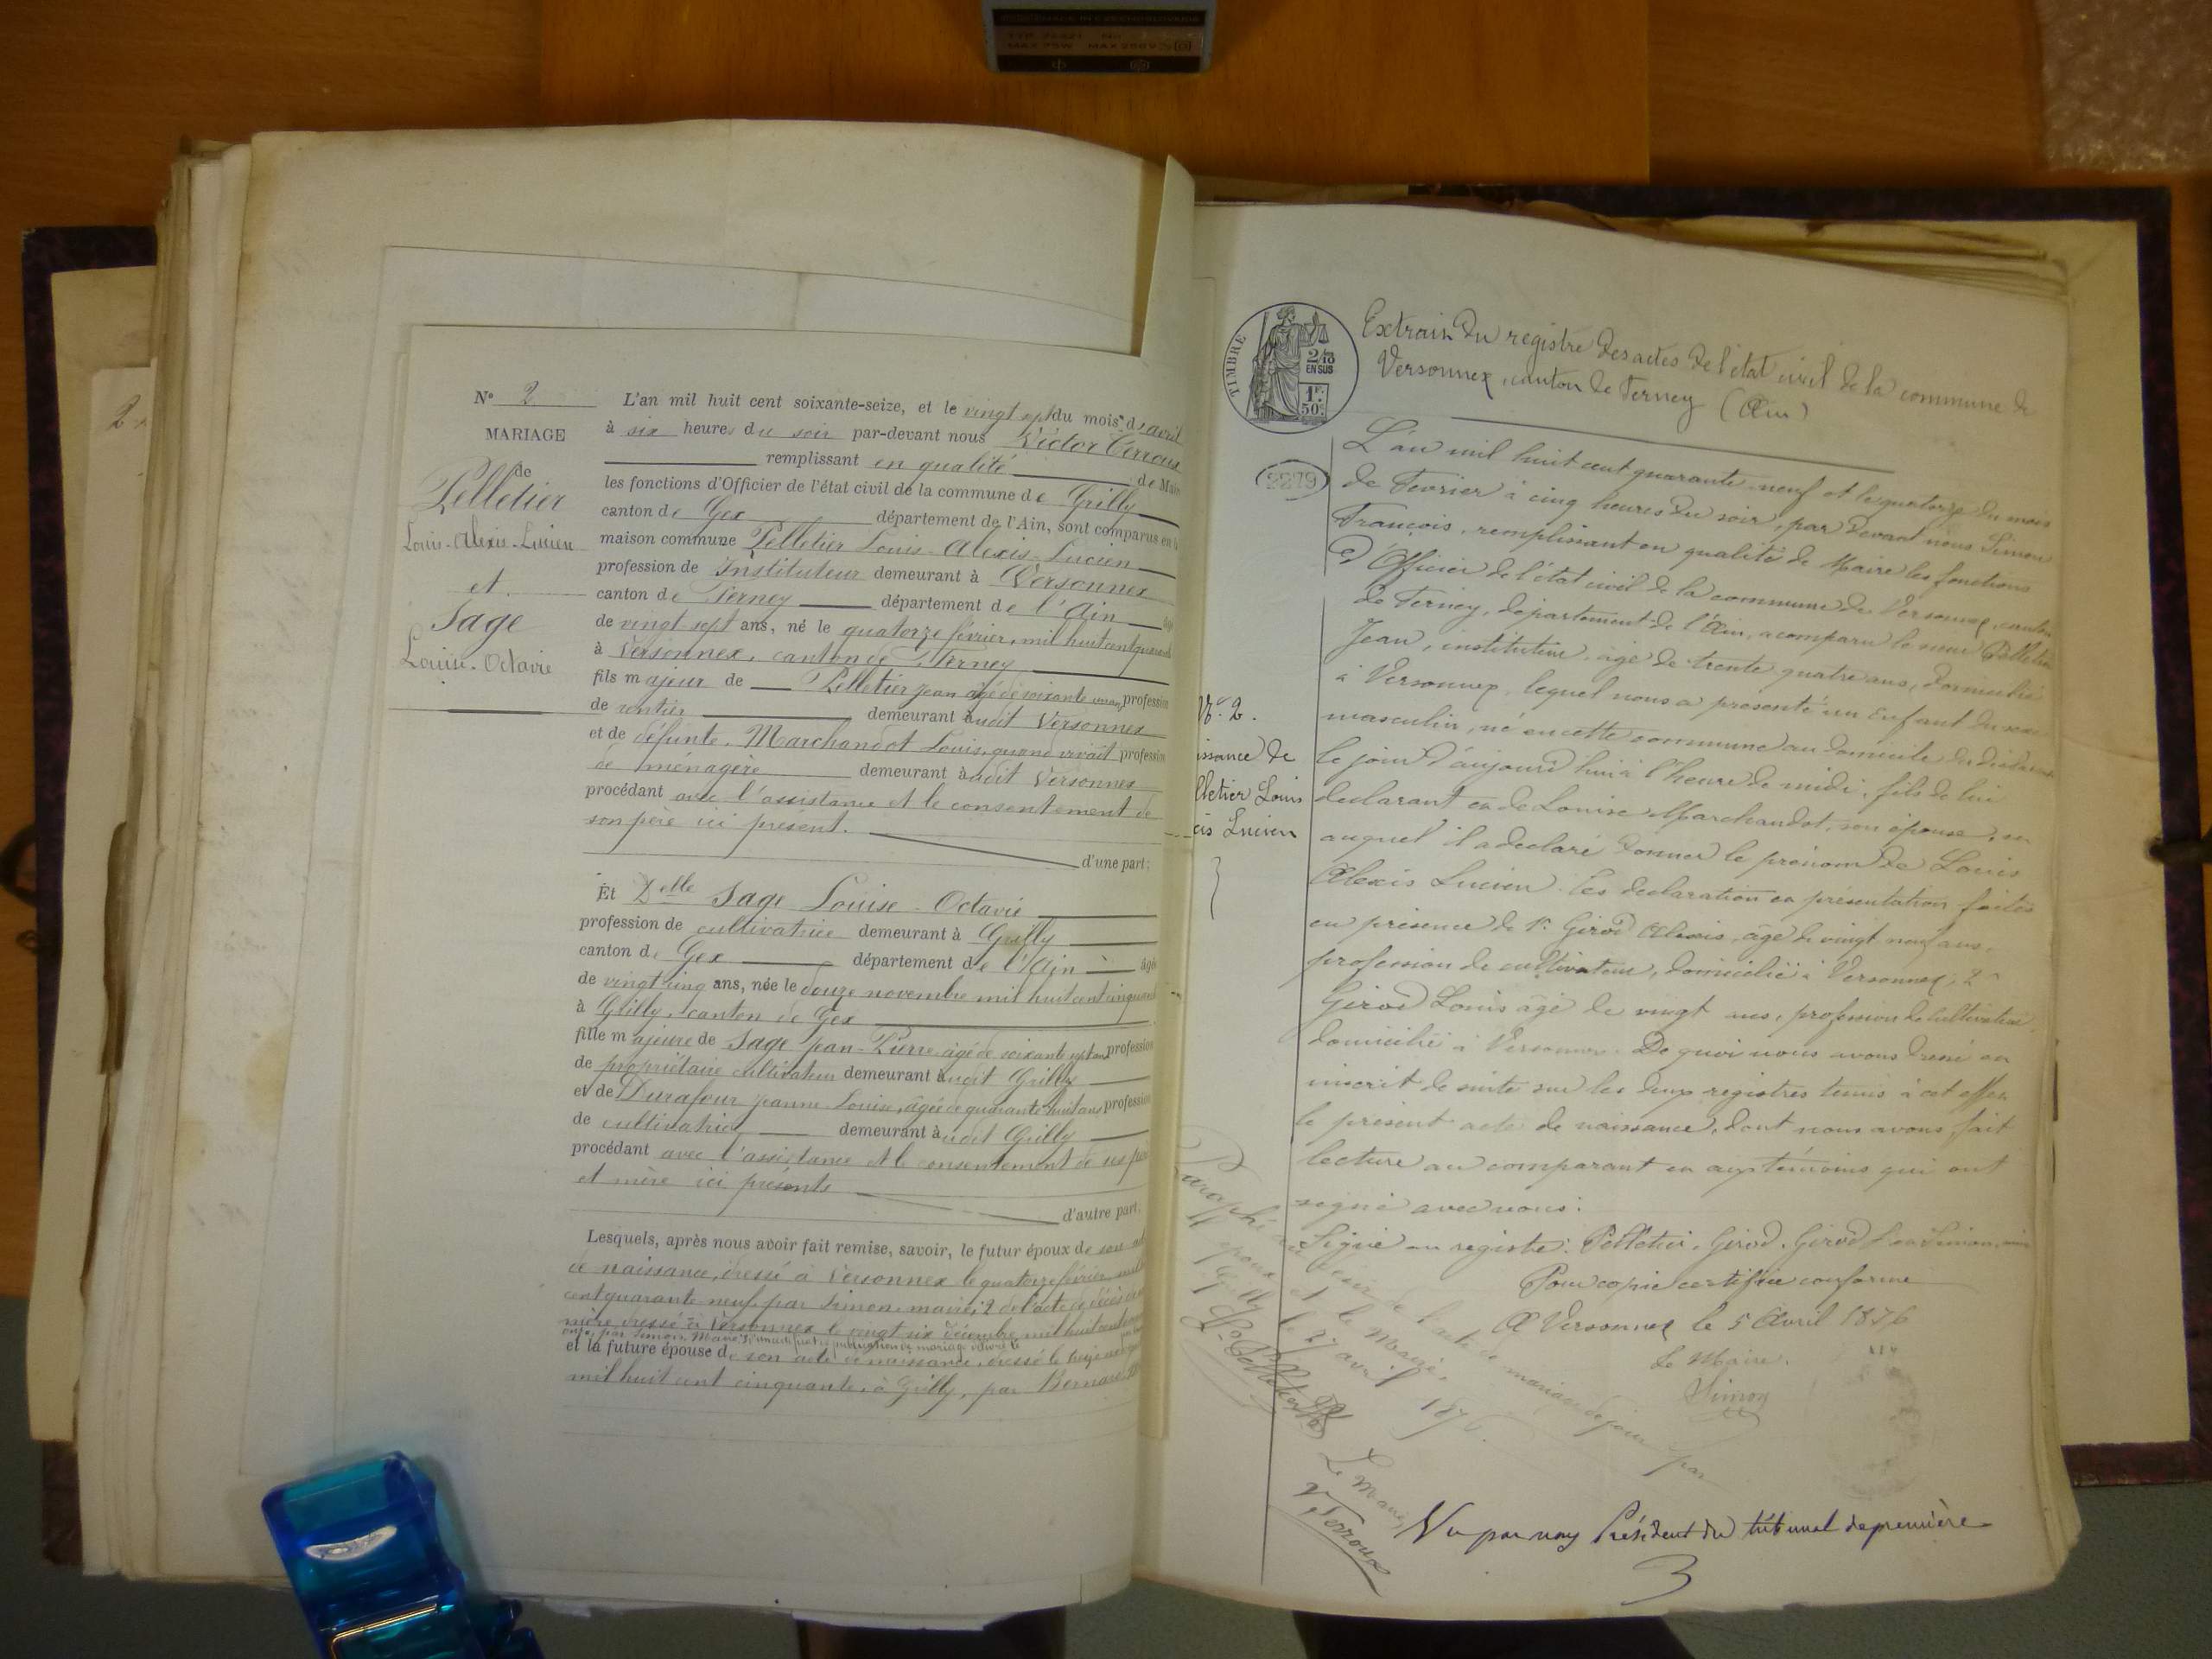 N° 2
MARIAGE
de
Pelletier
Louis-Alexis-Lucien
et
Sage
Louise-Octavie
L'an mil huit cent soixante-seize, et le vingt sept du mois d'avril
à six heures du soir par-devant nous Victor Terroux
remplissant en qualité de Maire
les fonctions d'Officier de l'état civil de la commune de Grilly
canton de Gex département de l'Ain, sont comparus en la
maison commune Pelletier Louis-Alexis-Lucien
profession de Instituteur demeurant à Versonnex
canton de Ferney département de l'Ain
de vingt sept ans, né le quatorze février, mil huit cent quarante
à Versonnex, canton de Ferney
fils majeur de Pelletier Jean âgé de soixante un ans profession
de rentier demeurant audit Versonnex
et de défunte Marchandot Louise, quand vivait profession
de ménagère demeurant audit Versonnex
procédant avec l'assistance et le consentement de
son père ici présent.
d'une part;
Et Delle Sage Louise-Octavie
profession de cultivatrice demeurant à Grilly
canton de Gex département de l'Ain âgé
de vingt cinq ans, née le douze novembre mil huit cent cinquante
à Grilly, canton de Gex
fille majeure de Sage Jean-Pierre âgé de soixante sept ans profession
de propriétaire cultivateur demeurant audit Grilly
et de Durafour Jeanne-Louise, âgée de quarante huit ans profession
de cultivatrice demeurant audit Grilly
procédant avec l'assistance et le consentement de ses père
et mère ici présents
d'autre part;
Lesquels, après nous avoir fait remise, savoir, le futur époux de son acte
de naissance, dressé à Versonnex le quatorze février mil
cent quarante neuf, par Simon maire; 2° de l'acte de décès de sa
mère dressé à Versonnex le vingt six décembre mil huit cent
par Simon, Maire publication de mariage
et la future épouse de son acte de naissance, dressé le treize
mil huit cent cinquante, à Grilly, par Bernard
TIMBRE
2/10
EN SUS
1F.
50c
2279
Extrait du registre des actes de l'état civil de la commune de
Versonnex, canton de Ferney (Ain)
L'an mil huit cent quarante-neuf et le quatorze du mois
de Février à cinq heures du soir, par devant nous Simon
François, remplissant en qualité de Maire les fonctions
d'Officier de l'état civil de la commune de Versonnex, canton
de Ferney, département de l'Ain, a comparu le sieur Pelletier
Jean, instituteur, âgé de trente quatre ans, domicilié
à Versonnex, lequel nous a présenté un Enfant du sexe
masculin, né en cette commune au domicile du déclarant
le jour d'aujourd'hui à l'heure de midi, fils de lui
déclarant et de Louise Marchandot, son épouse, et
auquel il a déclaré donner le prénom de Louis
Alexis Lucien. Les déclaration et présentation faites
en présence de 1° Girod Alexis, âgé de vingt neuf ans,
profession de cultivateur, domicilié à Versonnex, 2°
Girod Louis âgé de vingt ans, profession de cultivateur
domicilié à Versonnex. De quoi nous avons dressé et
inscrit de suite sur les deux registres tenus à cet effet
le présent acte de naissance, dont nous avons fait
lecture au comparant et aux témoins qui ont
signé avec nous.
Signé au registre: Pelletier, Girod, Girod et Simon, maire
Pour copie certifiée conforme
A Versonnex le 5 Avril 1876
Le Maire.
Simon
N° 2.
issance de
lletier Louis
cis Lucien
Paraphé au désir de l'acte de mariage de jour par
époux et le Maire.
Grilly le 27 avril 1876.
Ls Pelletier
Le Maire
V Terroux
Vu par nous Président du tribunal de première
3